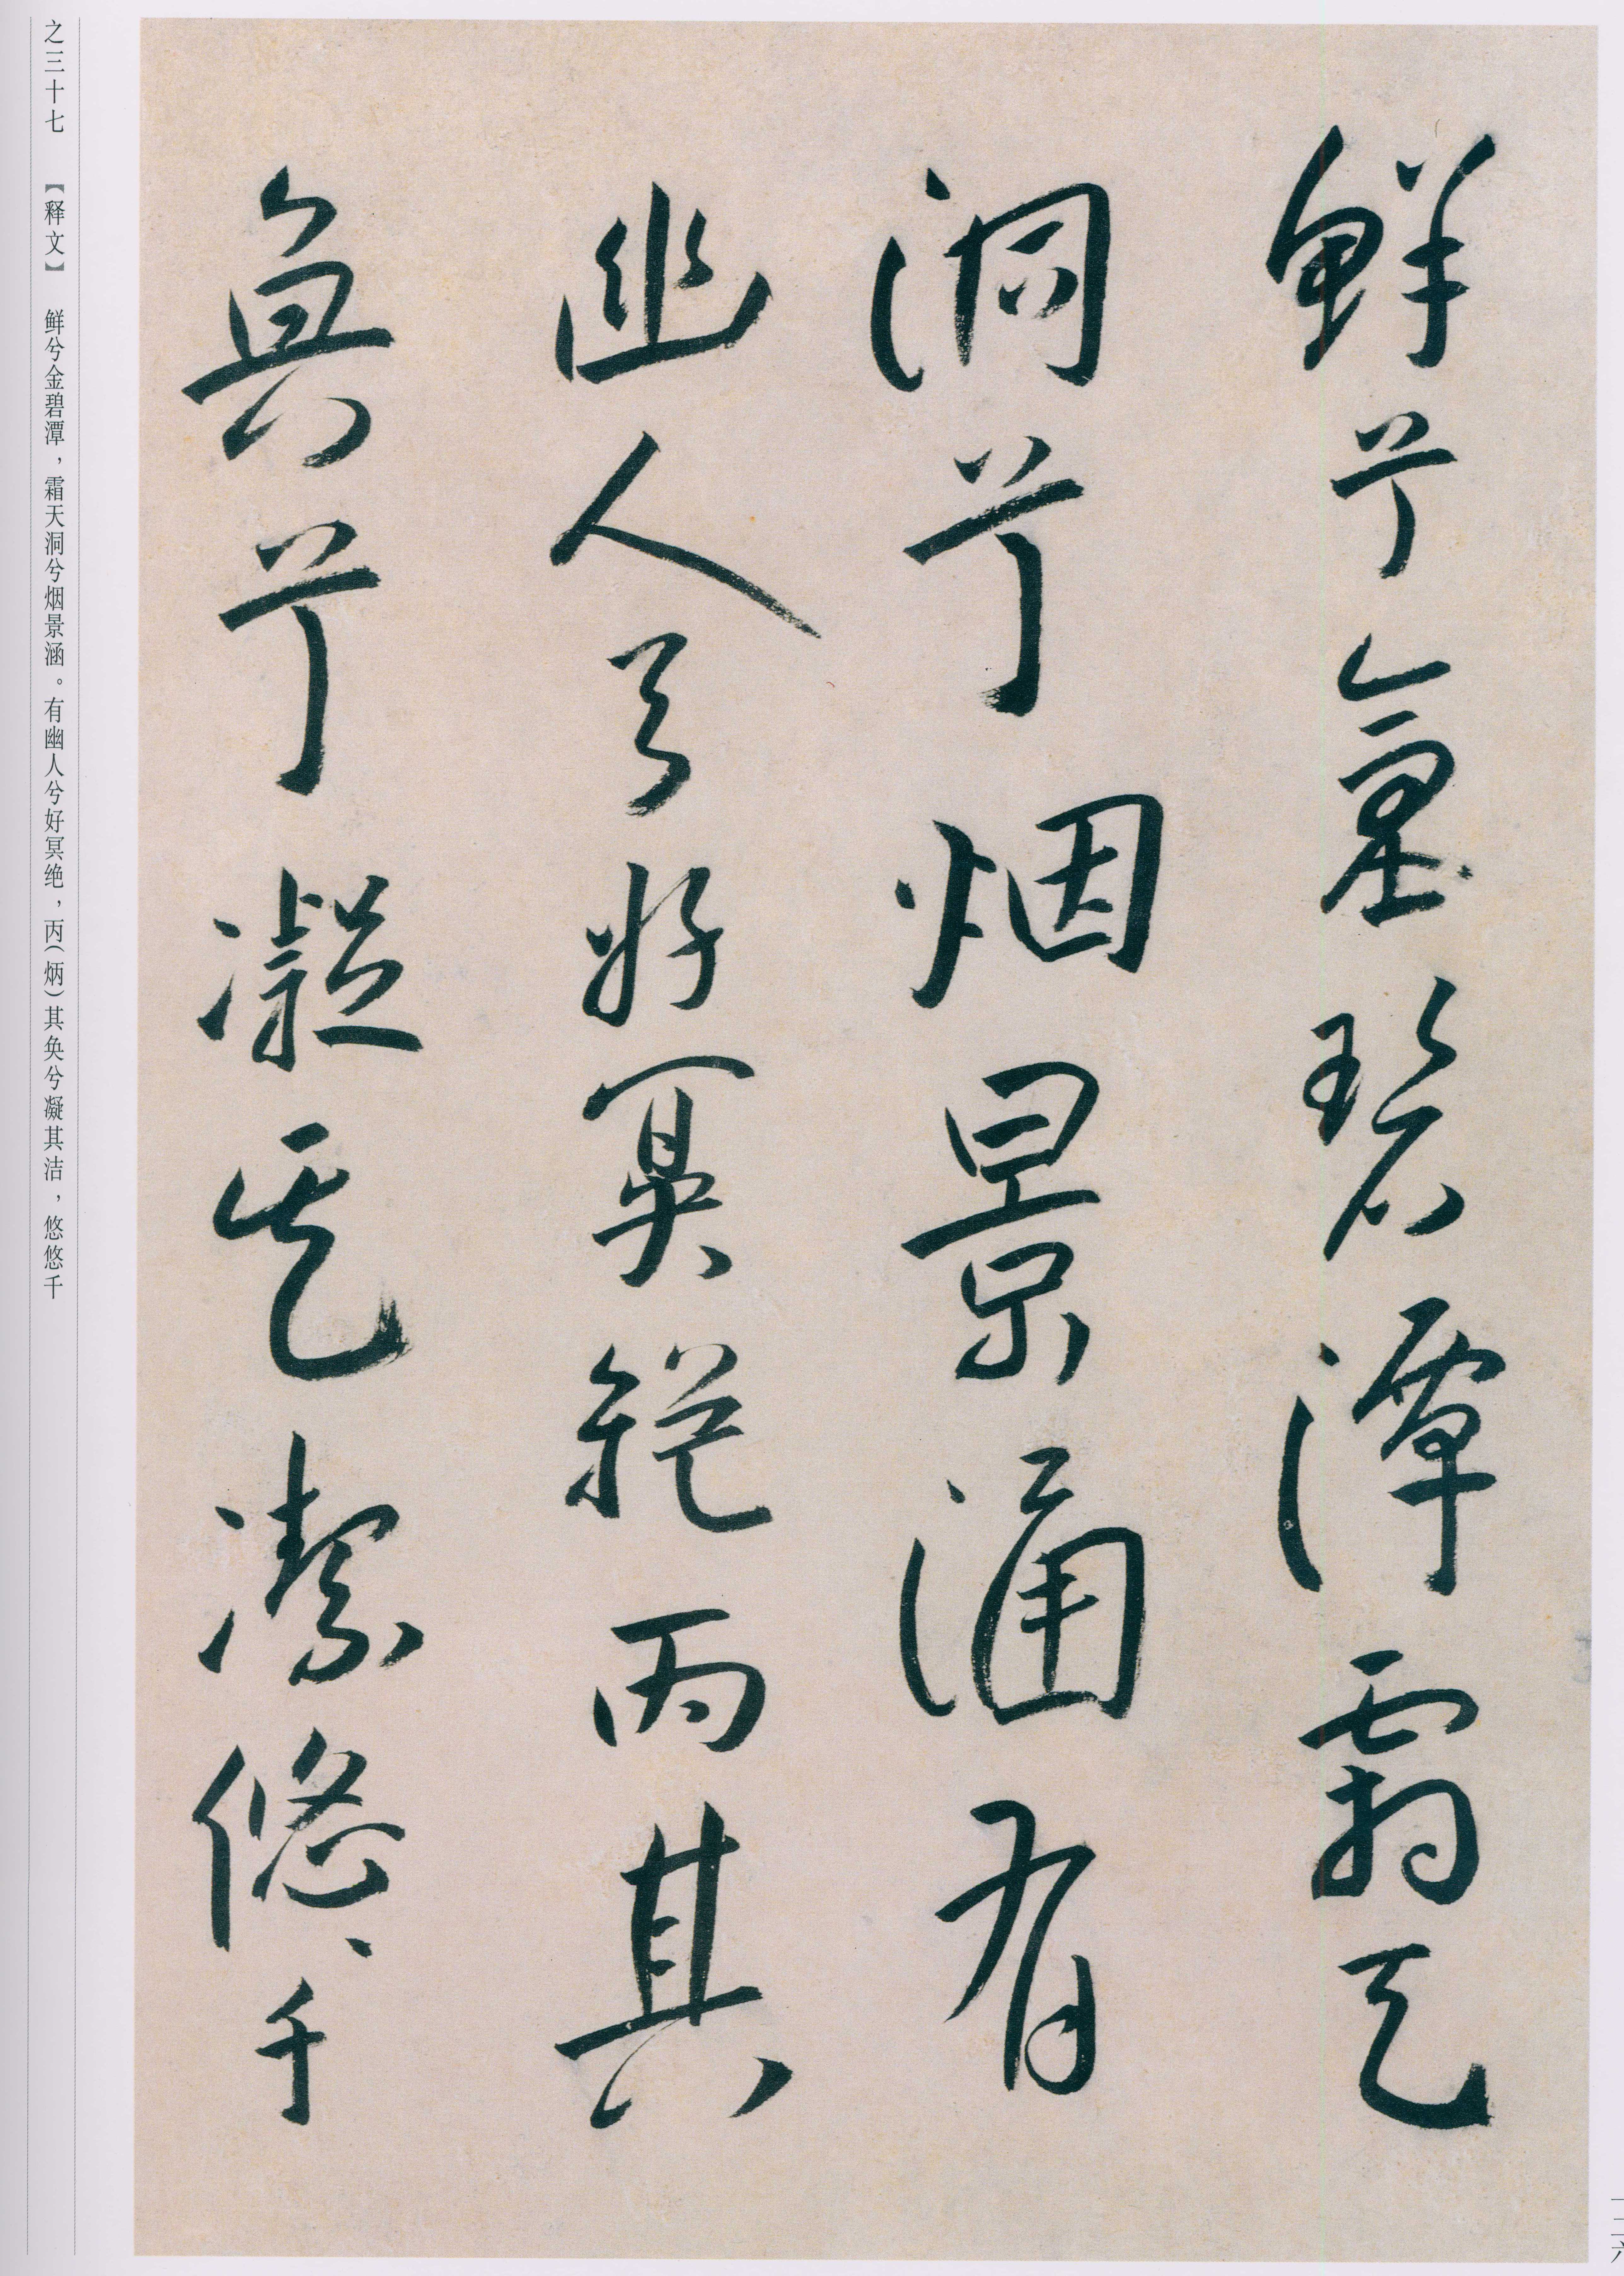 鮮兮金碧潭霜天
洞兮烟景涵有
幽人兮好冥絕丙其
奐兮凝其潔悠々千
之三十七 【释文】 鲜兮金碧潭，霜天洞兮烟景涵。有幽人兮好冥绝，丙（炳）其奂兮凝其洁，悠悠千
一二六